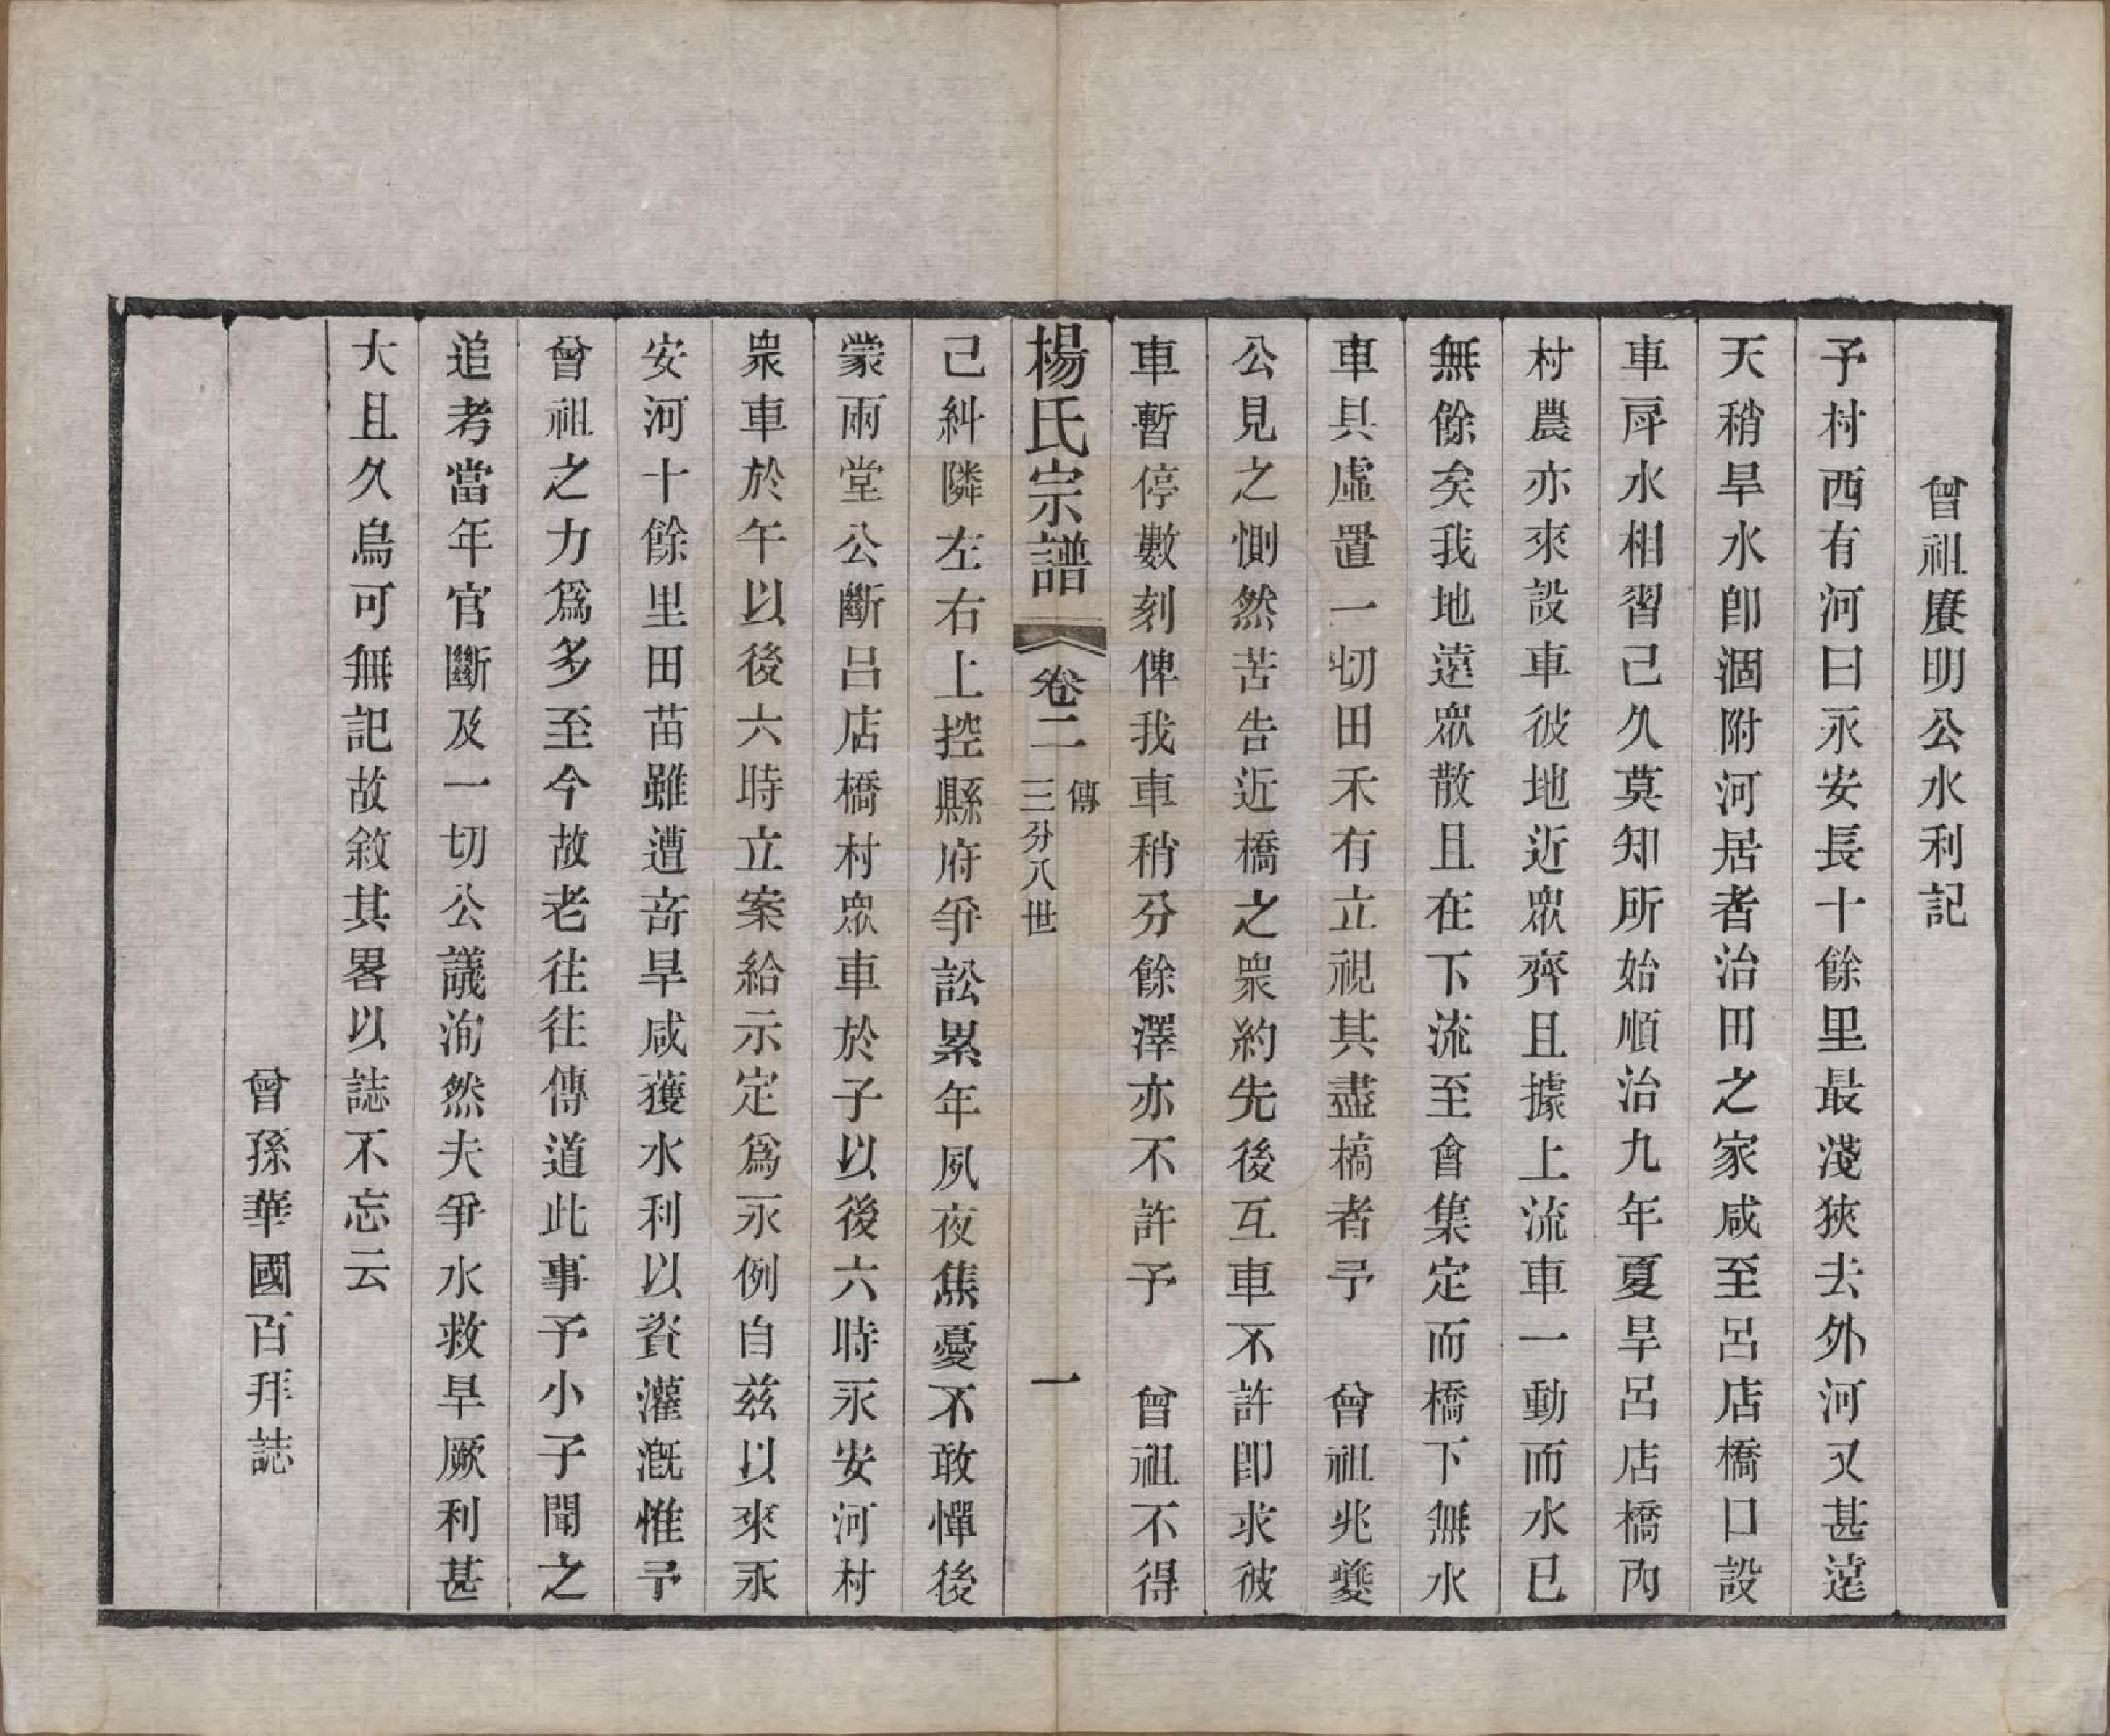 曾祖賡明公水利記
予村西有河曰永安長十餘里最淺狹去外河又甚遠
天稍旱水卽涸附河居者治田之家咸至呂店橋口設
車戽水相習已久莫知所始順治九年夏旱呂店橋內
村農亦來設車彼地近眾齊且據上流車一動而水已
無餘矣我地遠眾散且在下流至會集定而橋下無水
車具虛置一切田禾有立視其盡槁者予　曾祖兆夔
公見之惻然苦告近橋之眾約先後互車不許卽求彼
車暫停數刻俾我車稍分餘澤亦不許予　曾祖不得
楊氏宗譜　卷二　傳　三分八世　一
已糾隣左右上控縣府爭訟累年夙夜焦憂不敢憚後
蒙雨堂公斷呂店橋村眾車於子以後六時永安河村
眾車於午以後六時立案給示定爲永例自玆以來永
安河十餘里田苗雖遭竒旱咸獲水利以資灌漑惟予
曾祖之力爲多至今故老往往傳道此事予小子聞之
追考當年官斷及一切公議洵然夫爭水救旱厥利甚
大且久烏可無記故敘其畧以誌不忘云
曾孫華國百拜誌